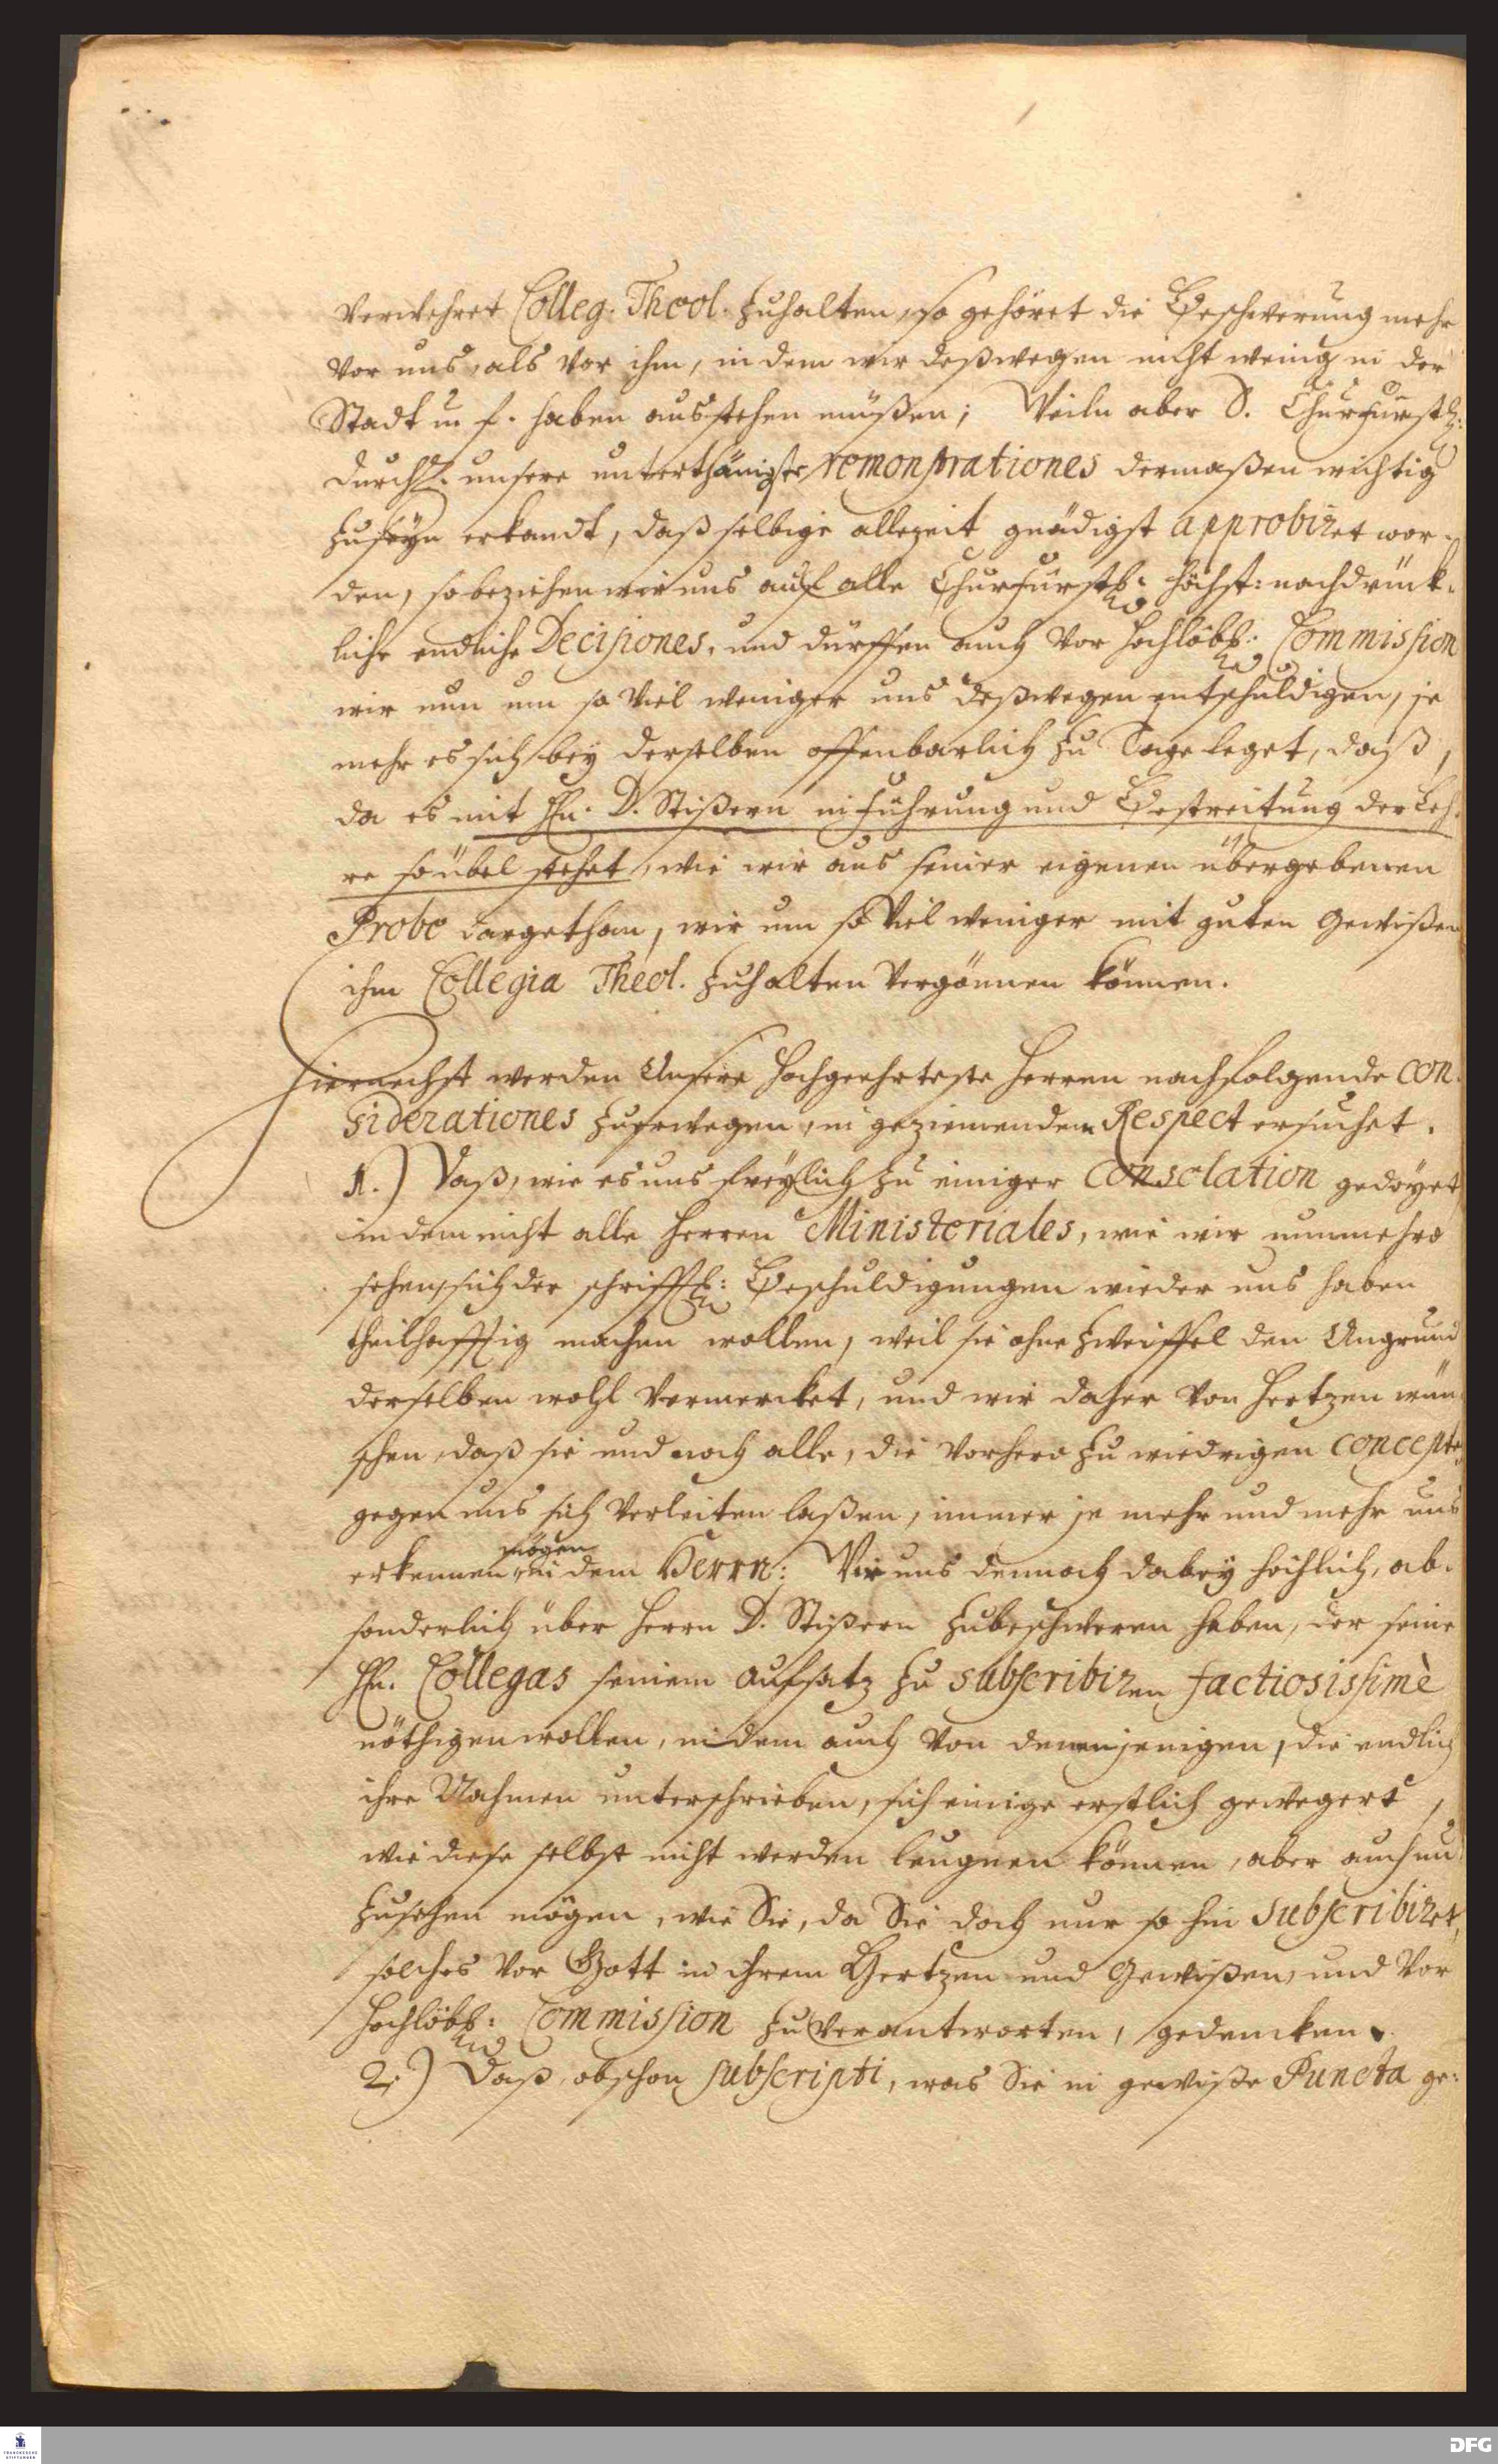 verwehret Colleg. Theol. zuhalten, so gehöret die Beschwerung mehr
vor uns, als vor ihm, in dem wir deßwegen nicht wenig in der
Stadt u. f. haben ausstehen müßen; Weiln aber S. Churfürstl:
Durchl. unsere unterthänigste remonstrationes dermaßen wichtig
zuseyn erkandt, daß selbige allezeit gnädigst approbiret wor-
den, so beziehen wir uns auf alle Churfürstl: höchst: nachdrück-
liche endliche Decisiones, und dürffen auch vor Hochlöbl: Commission
wir nun um so viel weniger uns deßwegen entschuldigen, je
mehr es sich bey derselben offenbarlich zu Tage leget, daß,
da es mit Hn. D. Stißern in führung und Bestreitung der Leh-
re so übel stehet, wie wir aus seiner eigenen übergebenen
Probe dargethan, wir um so viel weniger mit guten Gewißen
ihm Collegia Theol. zuhalten vergönnen können.
Hiernechst werden Unsere Hochgeehrteste Herren nachfolgende con-
siderationes zuerwegen, in geziemendem Respect ersuchet.
1.) Daß, wie es uns freylich zu einiger consolation gedeyet
in dem nicht alle Herren Ministeriales, wie wir nunmehro
sehen, sich der schrifftl: Beschuldigungen wieder uns haben
theilhafftig machen wollen, weil sie ohne Zweiffel den Ungrund
derselben wohl vermercket, und wir daher von Hertzen wün-
schen, daß sie und noch alle, die vorhero zu wiedrigen concepten
gegen uns sich verleiten laßen, immer je mehr und mehr uns
erkennen mögen in dem Herrn: Wir uns dennoch dabey höchlich, ab-
sonderlich über Herrn D. Stißern zubeschweren haben, der seine
Hn. Collegas seinem Aufsatz zu subscribiren factiosissimè
nöthigen wollen, in dem auch von denenjenigen, die endlich
ihre Nahmen unterschrieben, sich einige erstlich gewegert,
wie diese selbst nicht werden leugnen können, aber auch nun
zusehen mögen, wie Sie, da Sie doch nur so hin subscribiret,
solches vor Gott in ihrem Hertzen und Gewißen, und vor
Hochlöbl: Commission zu verantworten, gedencken.
2.) Daß, obschon subscripti, was Sie in gewiße Puncta ge-
FRANCKESCHE STIFTUNGEN
DFG